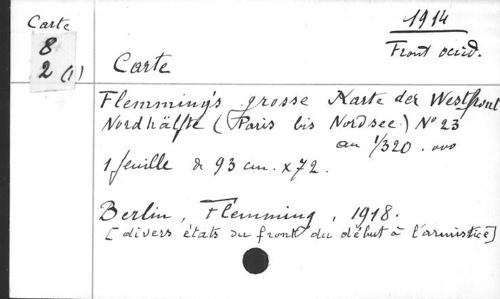 Carte
8
2 (1)
1914
Front occid.
Carte
Flemming's grosse Karte der Westfront
Nordhälfte (Paris bis Nordsee) N° 23
au 1/320.000
1 feuille de 93 cm. x 72.
Berlin, Flemming, 1918.
[divers états du front du début à l'armistice]